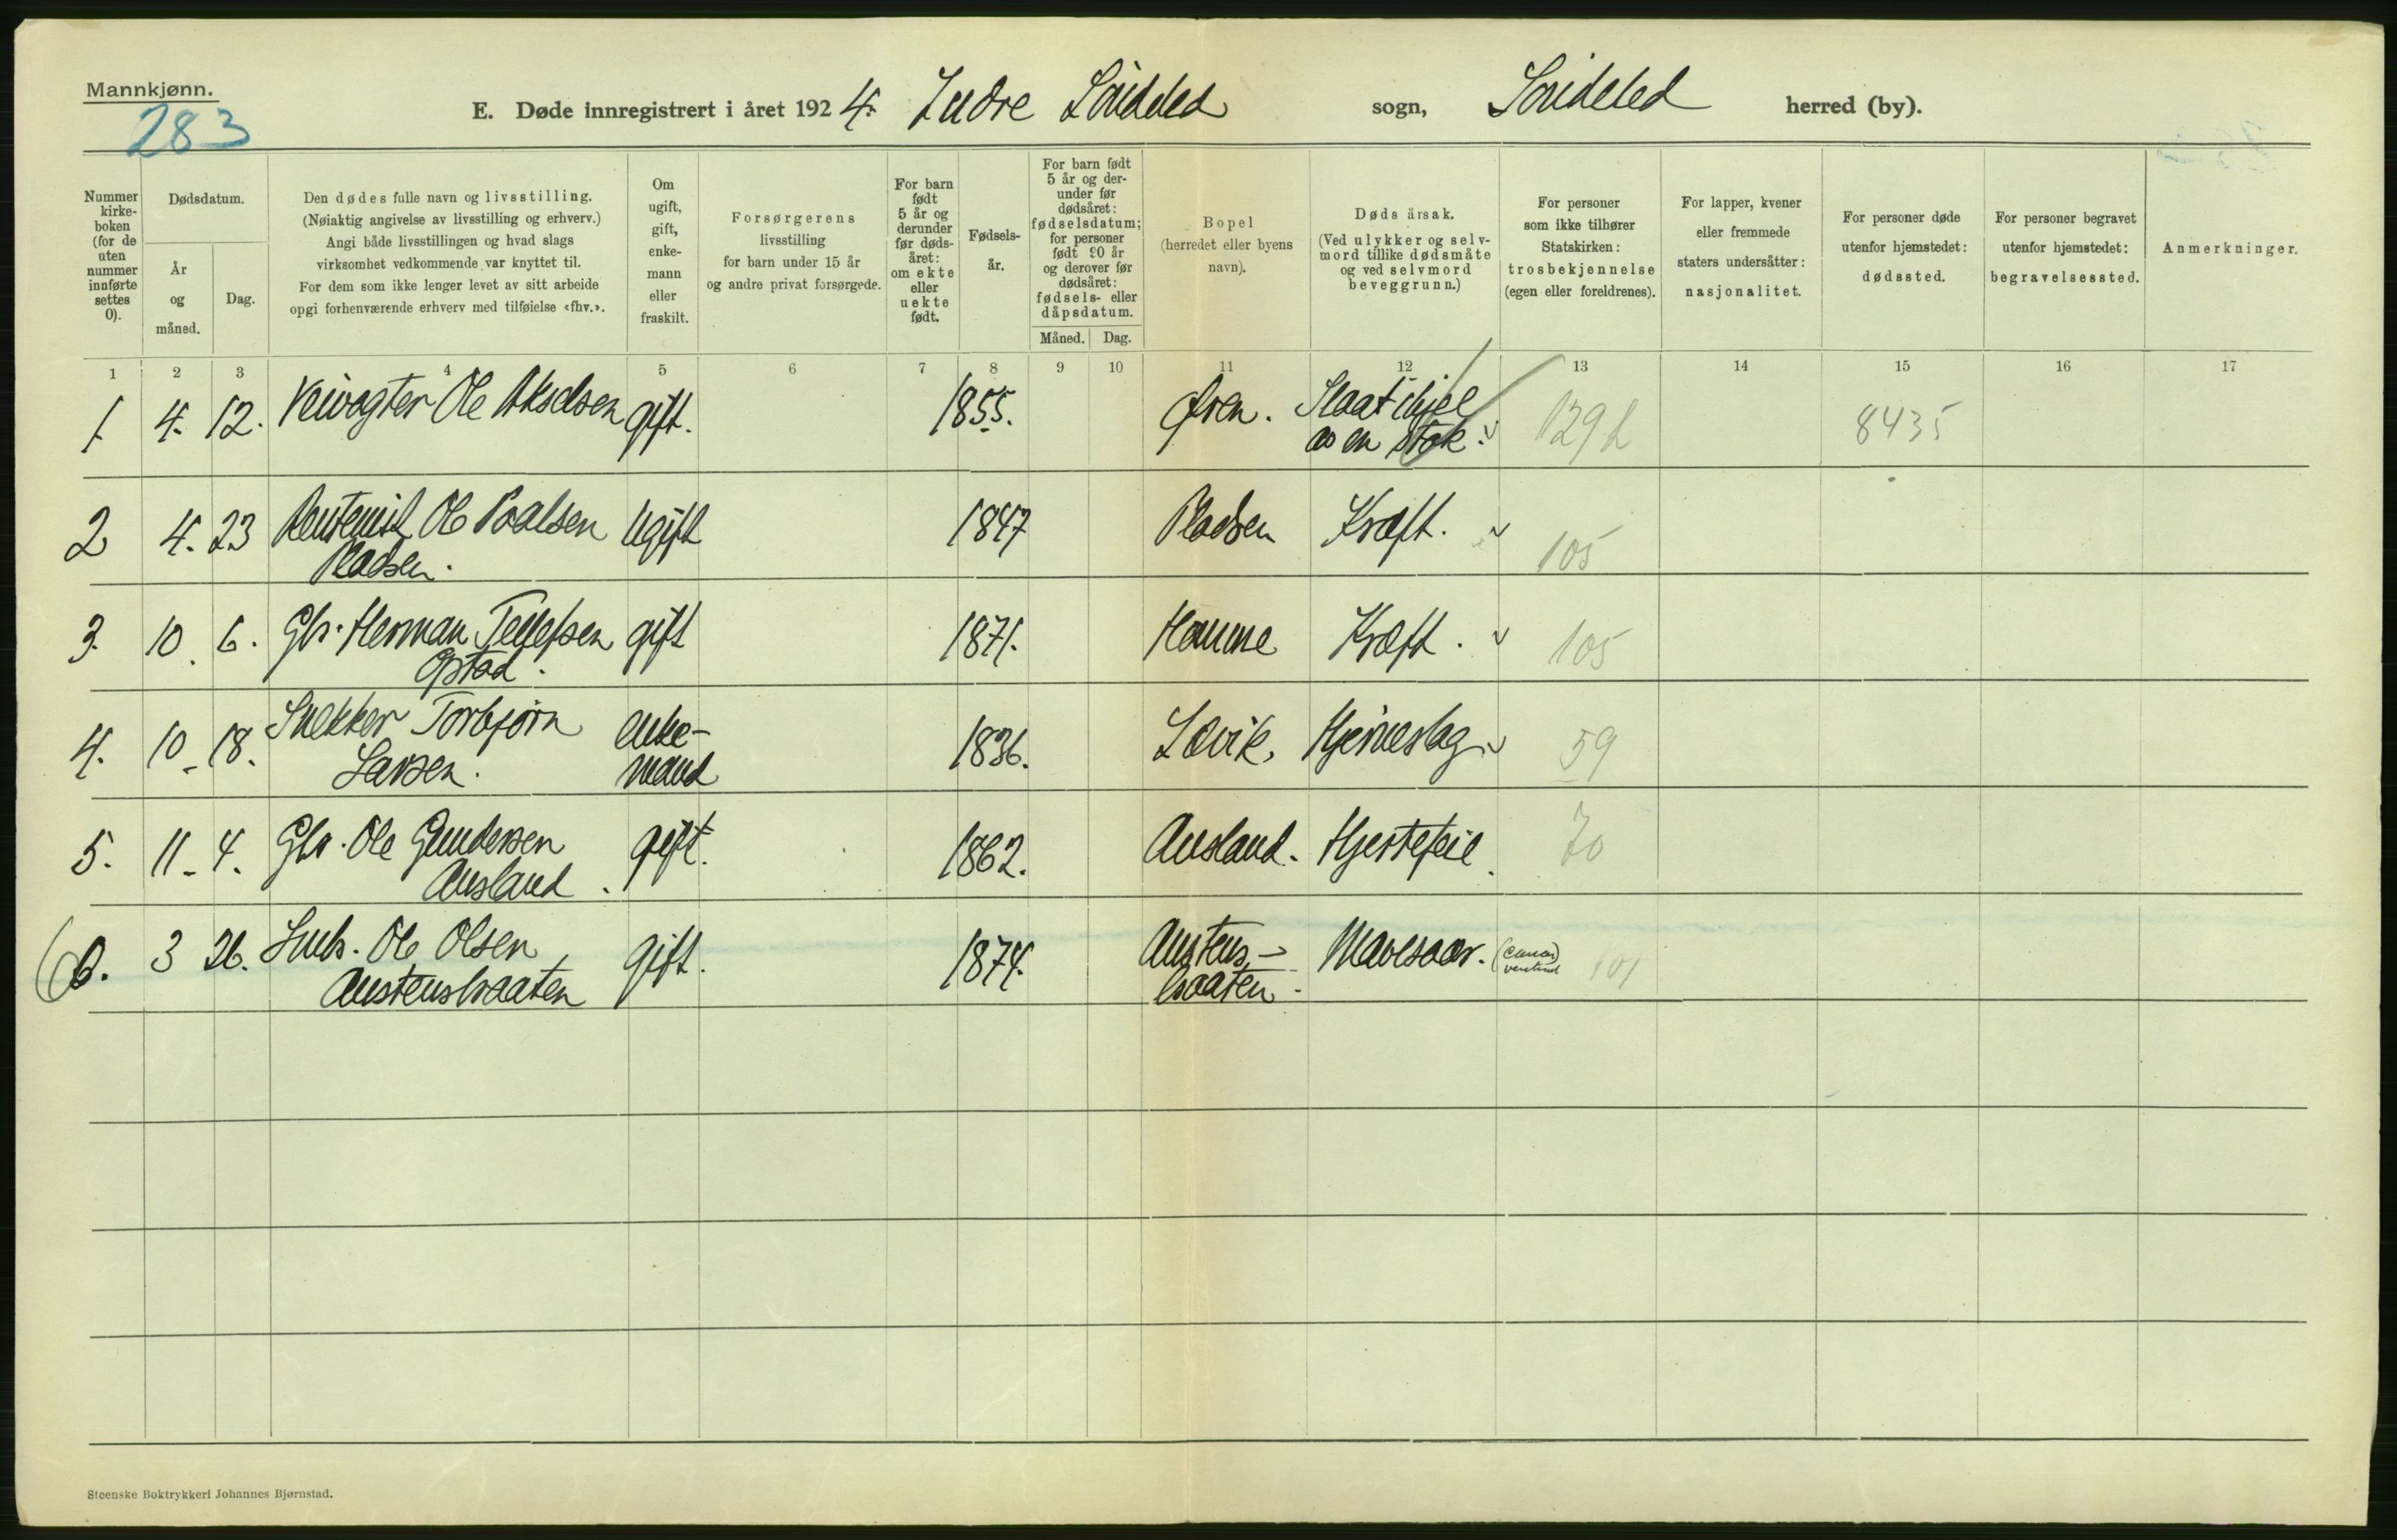 Mannkjønn.
283
E. Døde innregistrert i året 1924. Indre Söndeled sogn, Söndeled herred (by).
Nummer kirke-boken (for de uten nummer innførte settes 0).
Dødsdatum.
År og måned.
Dag.
Den dødes fulle navn og livsstilling.
(Nøiaktig angivelse av livsstilling og erhverv.)
Angi både livsstillingen og hvad slags
virksomhet vedkommende var knyttet til.
For dem som ikke lenger levet av sitt arbeide
opgi forhenværende erhverv med tilføielse «fhv.».
Om ugift, gift, enke-mann eller fraskilt.
Forsørgerens
livsstilling
for barn under 15 år
og andre privat forsørgede.
For barn født 5 år og derunder før døds-året: om ekte eller uekte født.
Fødsels-år.
For barn født 5 år og der-under før dødsåret: fødselsdatum; for personer født 90 år og derover før dødsåret: fødsels- eller dåpsdatum.
Måned. Dag.
Bopel
(herredet eller byens
navn).
Dødsårsak.
(Ved ulykker og selv-
mord tillike dødsmåte
og ved selvmord
beveggrunn.)
For personer
som ikke tilhører
Statskirken:
trosbekjennelse
(egen eller foreldrenes).
For lapper, kvener
eller fremmede
staters undersåtter:
nasjonalitet.
For personer døde
utenfor hjemstedet:
dødssted.
For personer begravet
utenfor hjemstedet:
begravelsessted.
Anmerkninger.
1 2 3 4 5 6 7 8 9 10 11 12 13 14 15 16 17
1. 4. 12. Veivogter Ole Akselsen gift. 1855. Øren. Slaat ihjel 129 8435
av en stok.
2 4. 23 Rentenist Ole Paalsen Ugift 1847 Pladsen Kræft. 105
Pladsen.
3. 10. 6. Gbr. Herman Tellefsen gift 1871. Hamme Kræft. 105
Opstad.
4. 10 - 18. Snekker Torbjørn enke- 1836. Lævik. Hjerneslag 59
Larsen. mand
5. 11 - 4. Gbr. Ole Gundersen gift. 1862. Ausland. Hjertefeil. 70
Ausland.
6. 3 26. Smbr. Ole Olsen gift. 1874. Austens- Mavesaar. (cancer 101
Austensbraaten braaten. ventriculi)
Steenske Boktrykkeri Johannes Bjørnstad.